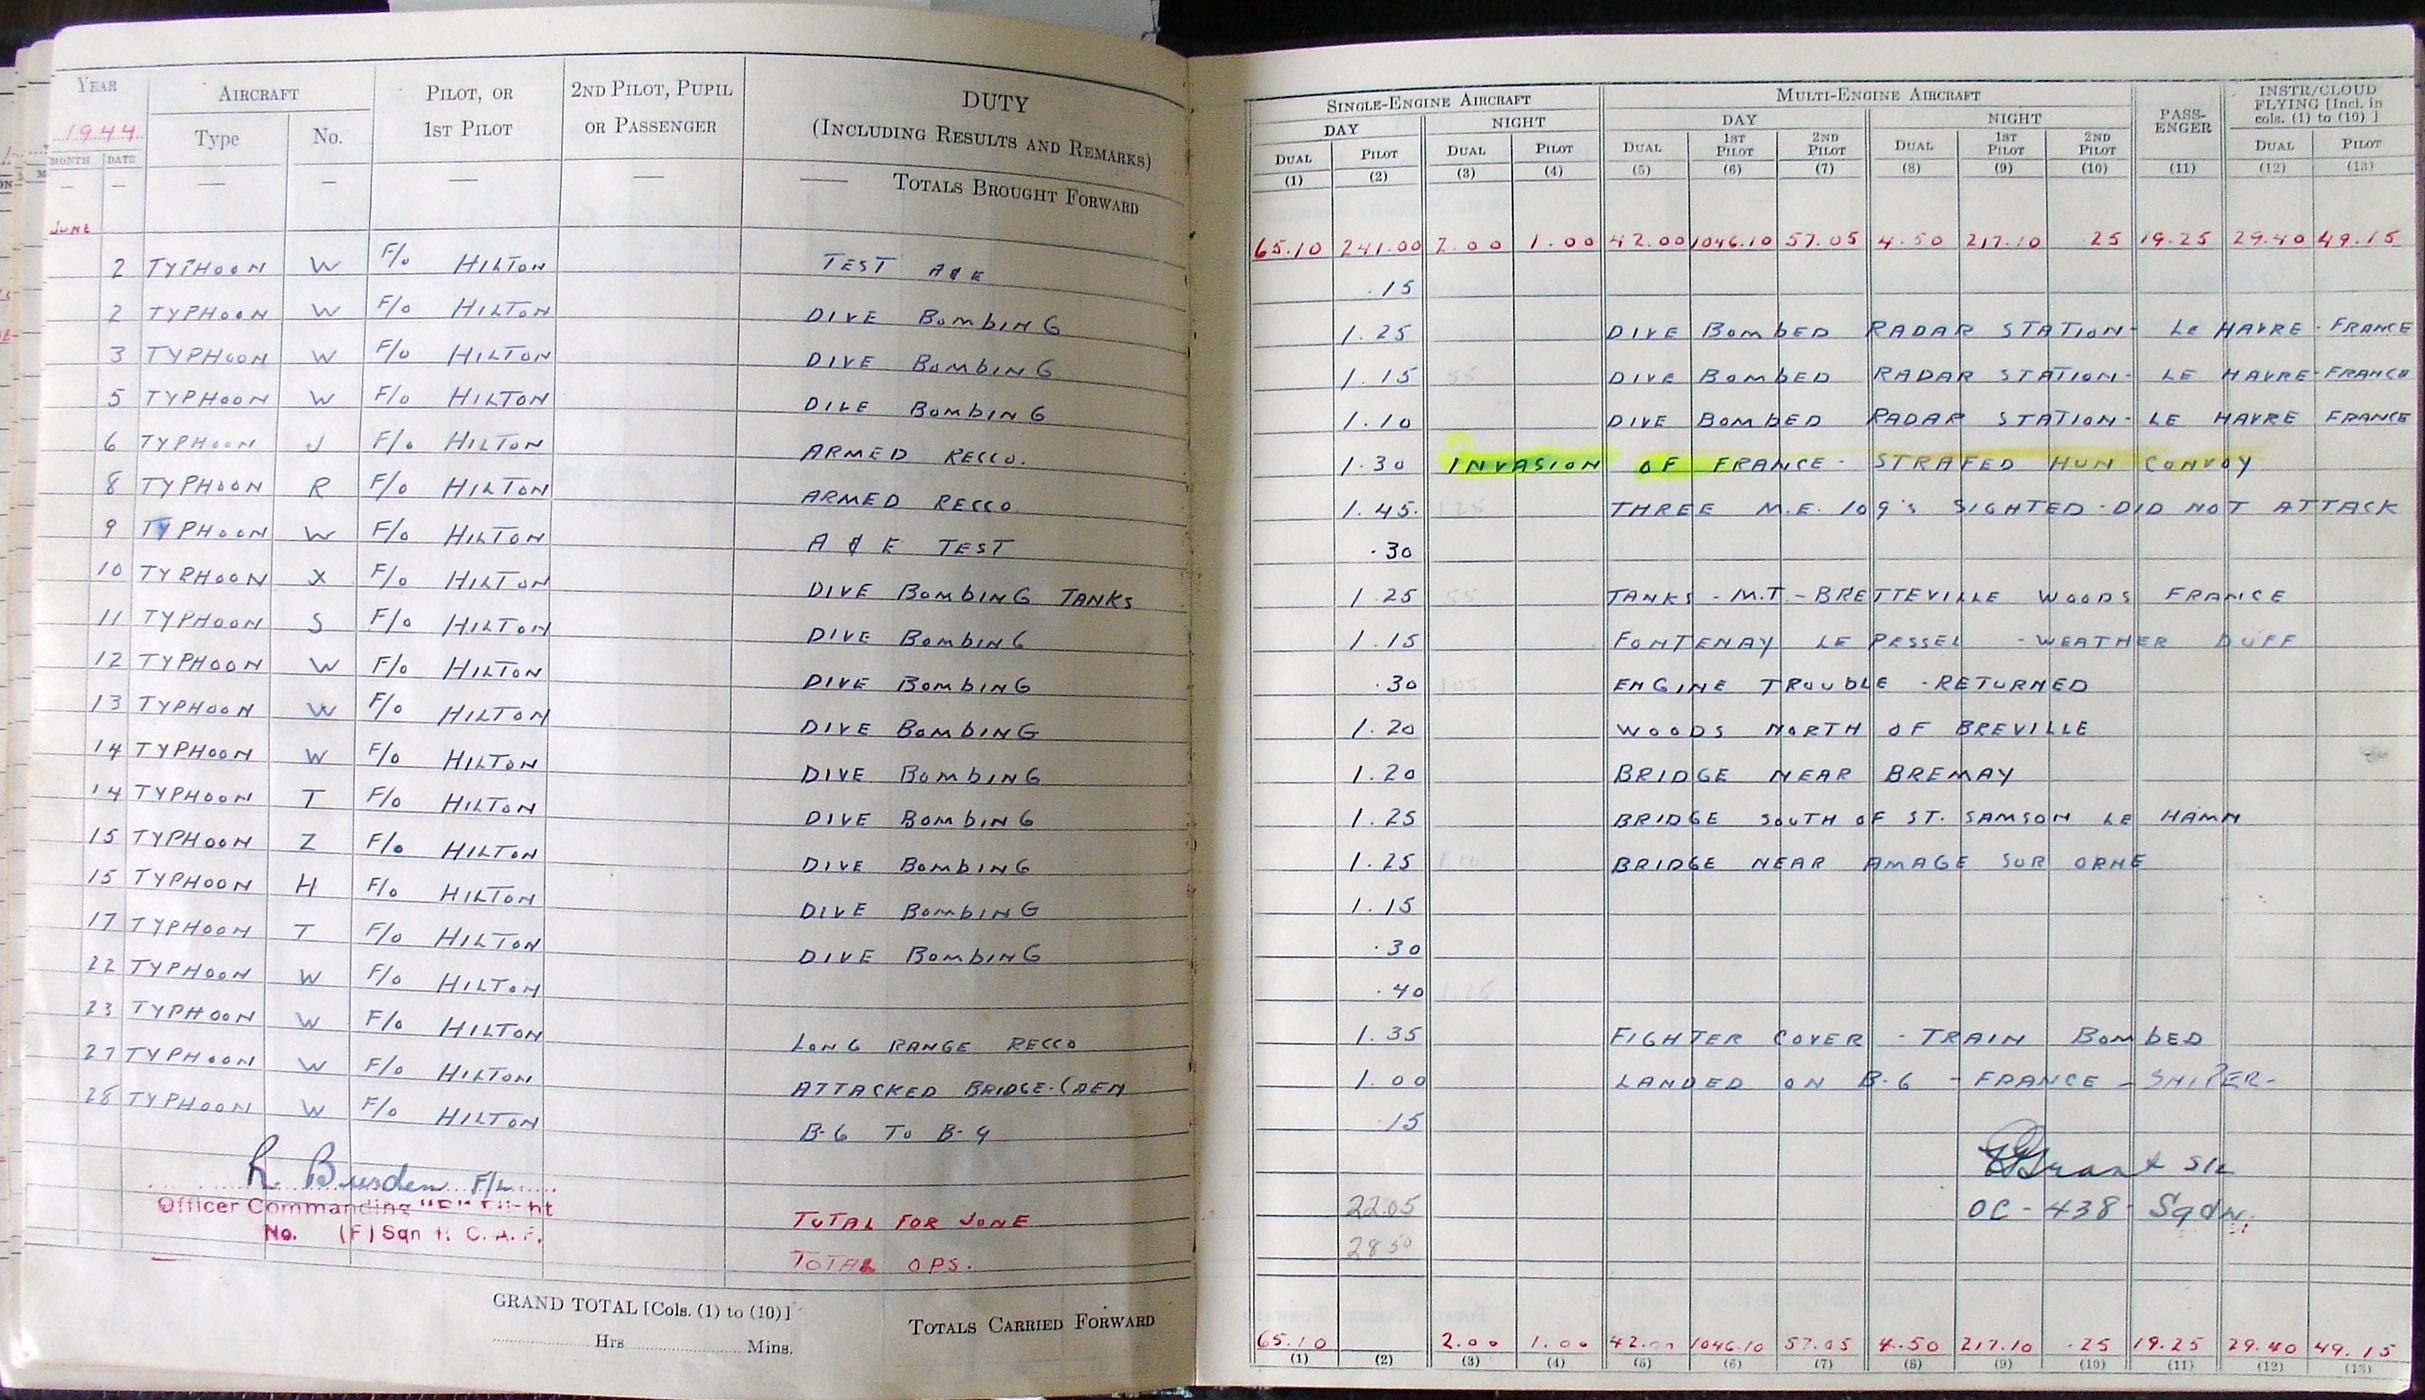 YEAR AIRCRAFT PILOT, OR 1ST PILOT 2ND PILOT, PUPIL OR PASSENGER DUTY (INCLUDING RESULTS AND REMARKS) SINGLE-ENGINE AIRCRAFT MULTI-ENGINE AIRCRAFT PASS-ENGER INSTR/CLOUD FLYING [Incl. in cols. (1) to (10) ]
1944 Type No. DAY NIGHT DAY NIGHT
MONTH DATE DUAL PILOT DUAL PILOT DUAL 1ST PILOT 2ND PILOT DUAL 1ST PILOT 2ND PILOT DUAL PILOT
(1) (2) (3) (4) (5) (6) (7) (8) (9) (10) (11) (12) (13)
— — — — — — — TOTALS BROUGHT FORWARD
JUNE 65.10 241.00 2.00 1.00 42.00 1046.10 57.05 4.50 217.10 .25 19.25 29.40 49.15
2 TYPHOON W F/o HILTON TEST A & E .15
2 TYPHOON W F/o HILTON DIVE BombING 1.25 DIVE BombED RADAR STATION - Le HAVRE - FRANCE
3 TYPHOON W F/o HILTON DIVE BombING 1.15 DIVE BombED RADAR STATION - LE HAVRE - FRANCE
5 TYPHOON W F/o HILTON DIVE BombING 1.10 DIVE BombED RADAR STATION - LE HAVRE FRANCE
6 TYPHOON J F/o HILTON ARMED RECCO. 1.30 INVASION OF FRANCE - STRAFED HUN CONVOY
8 TYPHOON R F/o HILTON ARMED RECCO 1.45. THREE M.E. 109's SIGHTED - DID NOT ATTACK
9 TYPHOON W F/o HILTON A & E TEST .30
10 TYPHOON X F/o HILTON DIVE BombING TANKS 1.25 TANKS - M.T. - BRETTEVILLE WOODS FRANCE
11 TYPHOON S F/o HILTON DIVE BombING 1.15 FONTENAY LE PESSEL - WEATHER DUFF
12 TYPHOON W F/o HILTON DIVE BombING .30 ENGINE TROUBLE - RETURNED
13 TYPHOON W F/o HILTON DIVE BombING 1.20 WOODS NORTH OF BREVILLE
14 TYPHOON W F/o HILTON DIVE BombING 1.20 BRIDGE NEAR BREMAY
14 TYPHOON T F/o HILTON DIVE BombING 1.25 BRIDGE SOUTH OF ST. SAMSON LE HAMN
15 TYPHOON Z F/o HILTON DIVE BombING 1.25 BRIDGE NEAR AMAGE SUR ORNE
15 TYPHOON H F/o HILTON DIVE BombING 1.15
17 TYPHOON T F/o HILTON DIVE BombING .30
22 TYPHOON W F/o HILTON .40
23 TYPHOON W F/o HILTON LONG RANGE RECCO 1.35 FIGHTER COVER - TRAIN BombED
27 TYPHOON W F/o HILTON ATTACKED BRIDGE. CAEN 1.00 LANDED ON B-6 - FRANCE - SNIPER-
28 TYPHOON W F/o HILTON B-6 To B-9 .15
R. Burden F/L Grant S/L
Officer Commanding Flight TOTAL FOR JUNE 22.05 OC - 438 Sqdn.
No. (F) Sqn R. C. A. F.
TOTAL OPS. 28 50
GRAND TOTAL [Cols. (1) to (10)]
Hrs Mins. TOTALS CARRIED FORWARD 65.10 2.00 1.00 42.00 1046.10 57.05 4.50 217.10 .25 19.25 29.40 49.15
(1) (2) (3) (4) (5) (6) (7) (8) (9) (10) (11) (12) (13)